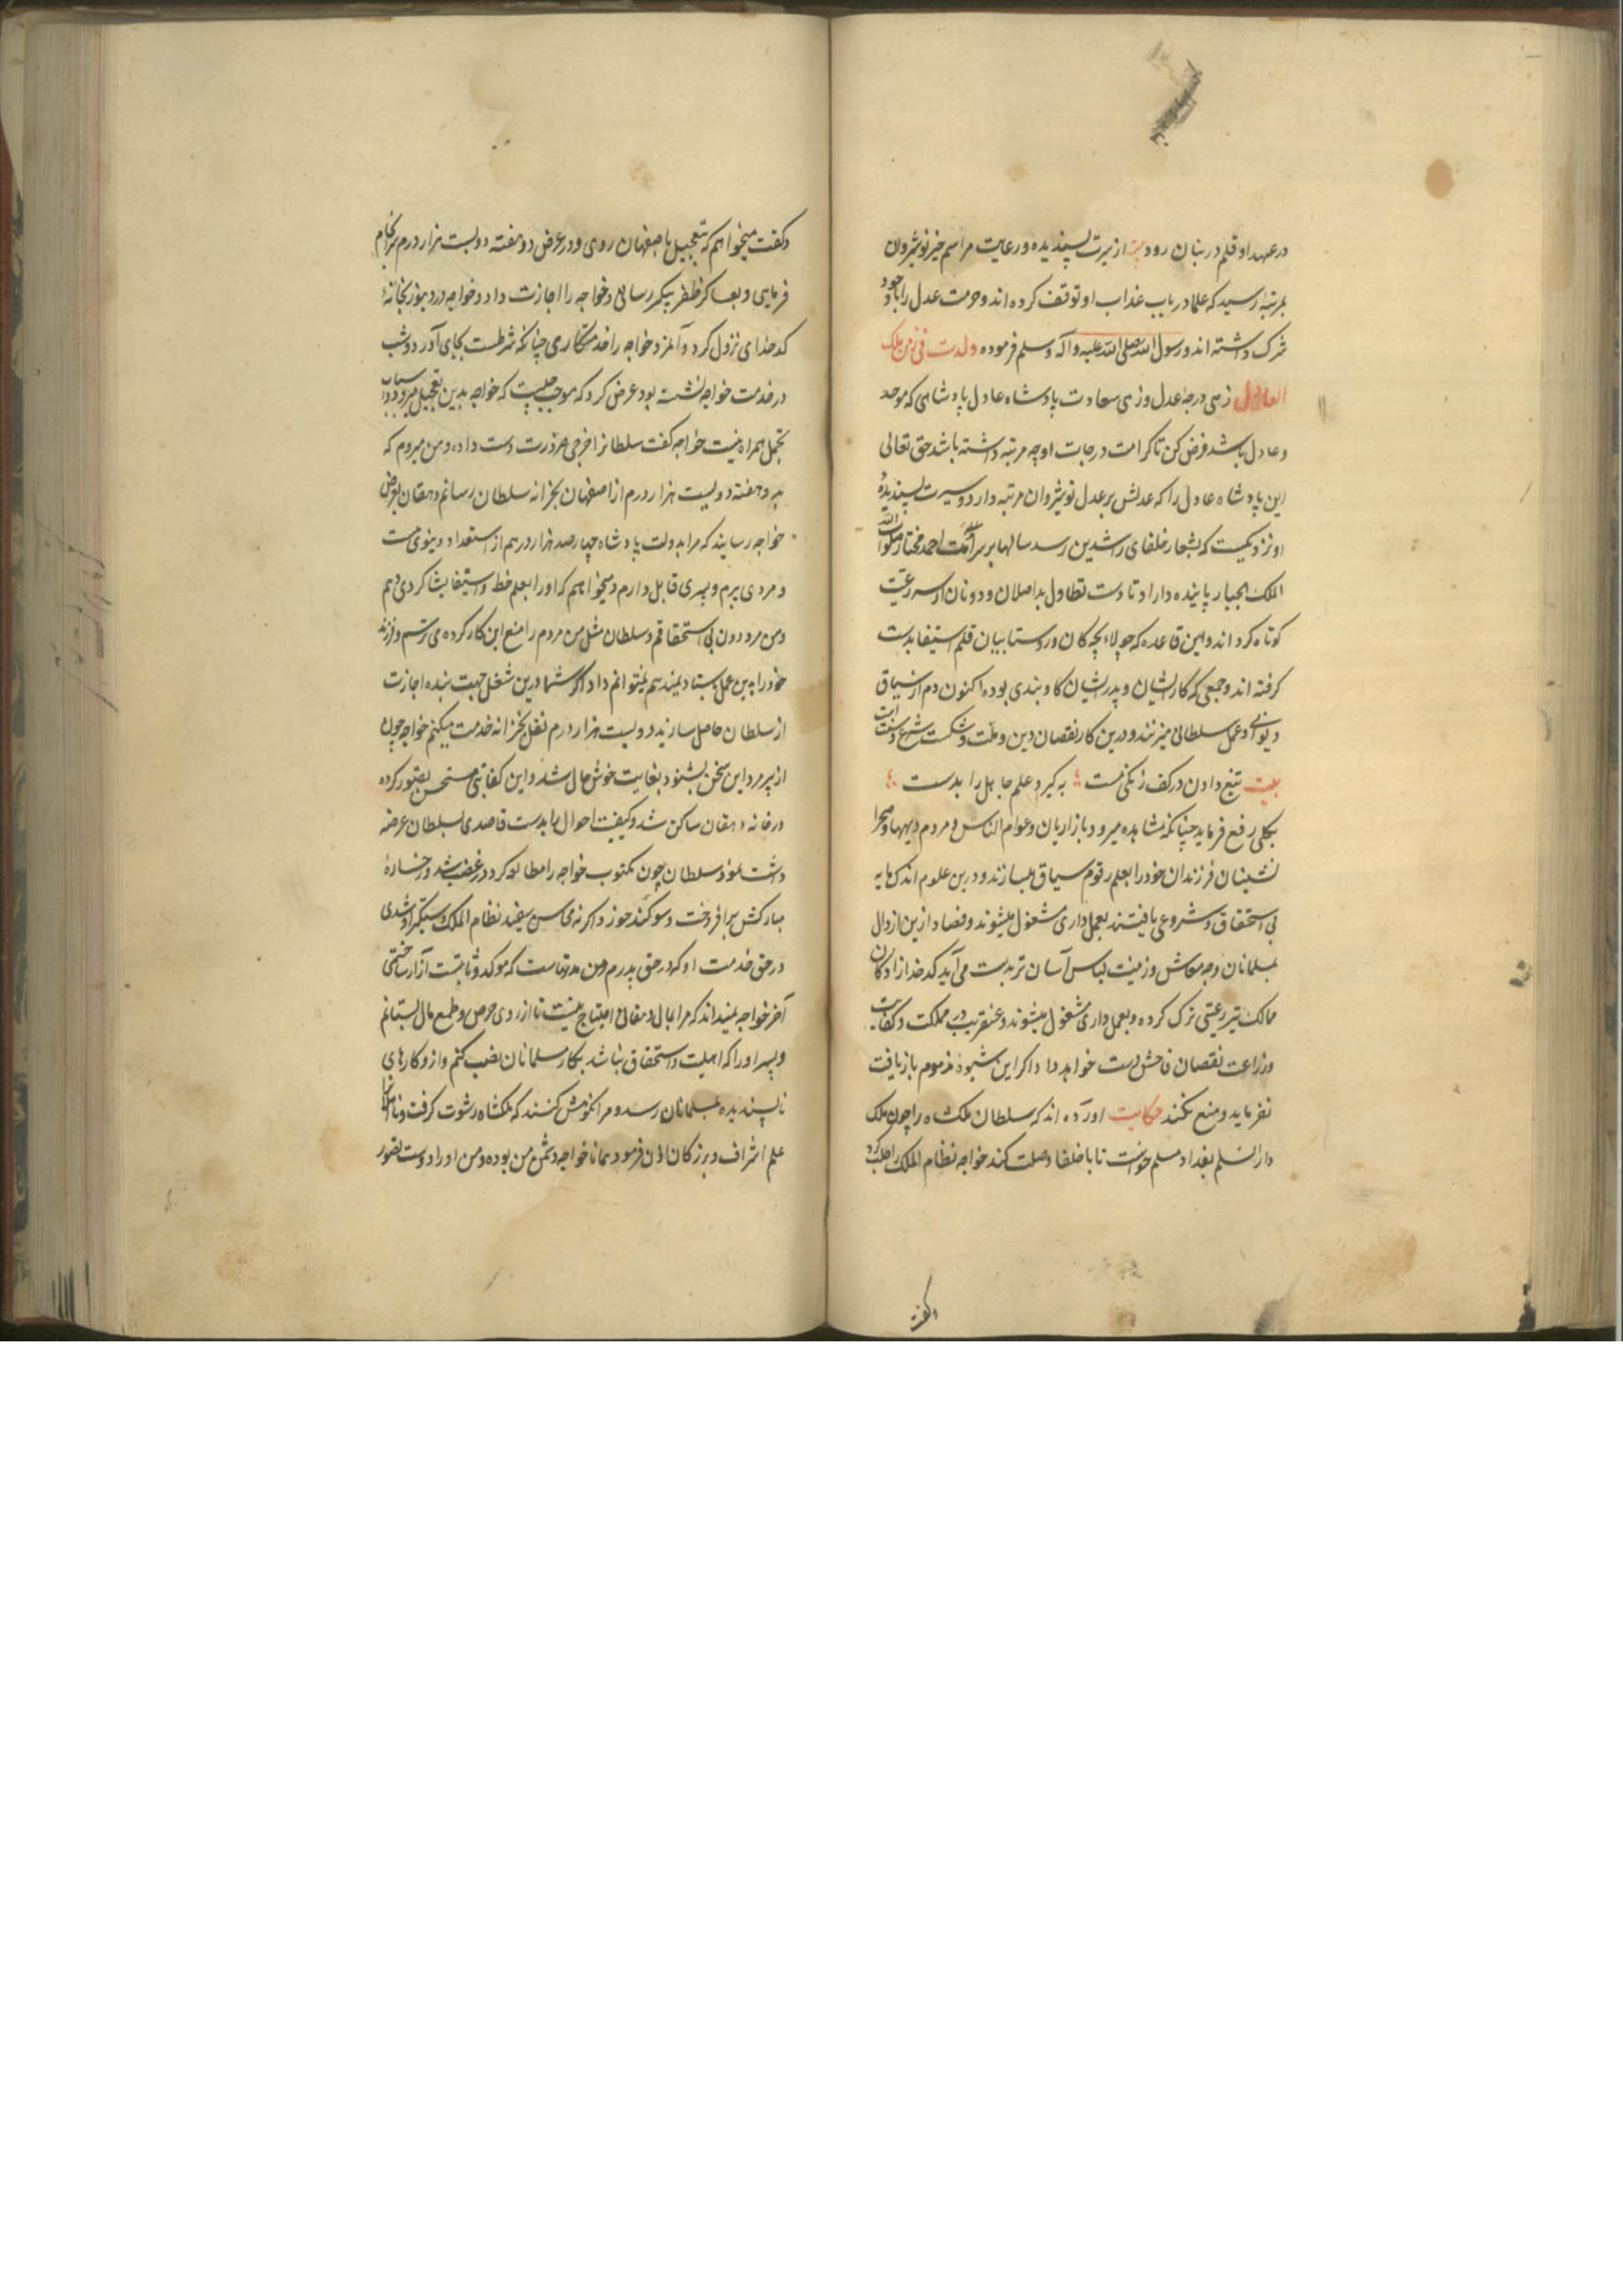 در عهد او قلم در بنان رود از سیرت پسندیده و رعایت مراسم خیر نوشیروان
بمرتبه رسید که علما در باب عذاب او توقف کرده اند و حرمت عدل را با وجود
شرک داشته اند و رسول الله صلی الله علیه و آله وسلم فرموده ولدت فی زمن ملک
العادل زهی درجه عدل وزهی سعادت پادشاه عادل پادشاهی که موحد
و عادل باشد فرض کن تا کرامت درجات او چه مرتبه داشته باشد حق تعالی
این پادشاه عادل را که عدلش بر عدل نوشیروان مرتبه دارد و سیرت پسندیده
او نزدیکست که بشعار خلفای راشدین رسد سالها بر سر امت احمد مختار صلوات الله
الملک الجبار پاینده داراد تا دست تطاول بداصلان و دونان از سر رعیت
کوتاه کرداند و این قاعده که جولاء بچه کان و روستا بیان قلم استیفا بدست
کرفته اند و جمعی که کار ایشان و پدر ایشان کاوبندی بوده اکنون دم از سیاق
دیوانی و عمل سلطانی میزنند و درین کار نقصان دین و ملت و شکست شرع و سنت است
بیت تیغ دادن در کف زنکی مست به که کیرد علم جاهل را بدست
بکلی رفع فرماید چنانکه مشاهده میرود بازاریان و عوام الناس و مردم دیهها و صحرا
نشینان فرزندان خود را بعلم رقوم سیاق میسازند و درین علوم اندک مایه
بی استحقاق و شروعی یافتند بعمل داری مشغول میشوند و فساد ازین ارذال
بمسلمانان وجه معاش وزینت لباس آسان تر بدست می آید کدخدازادکان
ممالک نیز رعیتی ترک کرده و بعمل داری مشغول میشوند و عنقریب در مملکت و کفایت
وزراعت نقصان فاحش دست خواهد داد اکر این شیوه مذموم باز یافت
نفرماید و منع نکنند حکایت آورده اند که سلطان ملکشاه را چون ملک
دار السلم بغداد مسلم خواست تا با خلفا وصلت کند خواجه نظام الملک را طلب کرد
وکفت
وکفت میخواهم که بتعجیل باصفهان روی و در عرض دو هفته دویست هزار درم سرانجام
فرمایی و بعساکر ظفر پیکر رسانی و خواجه را اجازت داد و خواجه در دیهی بخانهٔ
کدخدای نزول کرد و آنمرد خواجه را خدمتکاری چنانکه شرطست بجای آورد و شب
در خدمت خواجه نشسته بود عرض کرد که موجب چیست که خواجه بدین تعجیل میرود و اسباب
تجمل همراه نیست خواجه کفت سلطانرا خرجی ضرورت دست داده و من میروم که
به دو هفته دویست هزار درم از اصفهان بخزانه سلطان رسانم دهقان بعرض
خواجه رسانید که مرا بدولت پادشاه چهار صد هزار درهم از استعداد دینوی هست
و مردی پیرم و پسری قابل دارم و میخواهم که او را بعلم خط و استیفا بشاکردی دهم
و من مرد دون بی استحقاقم و سلطان مثل من مردم را منع این کار کرده می ترسم و فرزند
خود را بدین عمل باستاد نمیدهم نمیتوانم داد اکر شما درین شغل جهت بنده اجازت
از سلطان حاصل سازید دویست هزار درم نقل بخزانه خدمت میکنم خواجه چون
از پیر مرد این سخن بشنود بغایت خوش حال شد و این کفایتی مستحسن تصور کرده
در خانه دهقان ساکن شد و کیفیت احوال را بدست قاصدی بسلطان عرضه
داشت نمود سلطان چون مکتوب خواجه را مطالعه کرد در غضب شد و رخسارهٔ
مبارکش برافروخت و سوکند خورد و اکر نه محاسن سفید نظام الملک دستکیر او شدی
در حق خدمت او که در حق پدرم و من مدتهاست که موکد و ثابتست آزار ساختمی
آخر خواجه نمیداند که مرا بمال دهقانی احتیاج نیست تا از روی حرص و طمع مال بستانم
و پسر او را که اهلیت و استحقاق نباشد بکار مسلمانان نصب کنم و از و کارهای
ناپسندیده بمسلمانان رسد و مرا نکوهش کنند که ملکشاه رشوت کرفت و نااهلانرا
علم اشراف و بزرکان اذن فرمود همانا خواجه دشمن من بوده و من او را دوست تصور